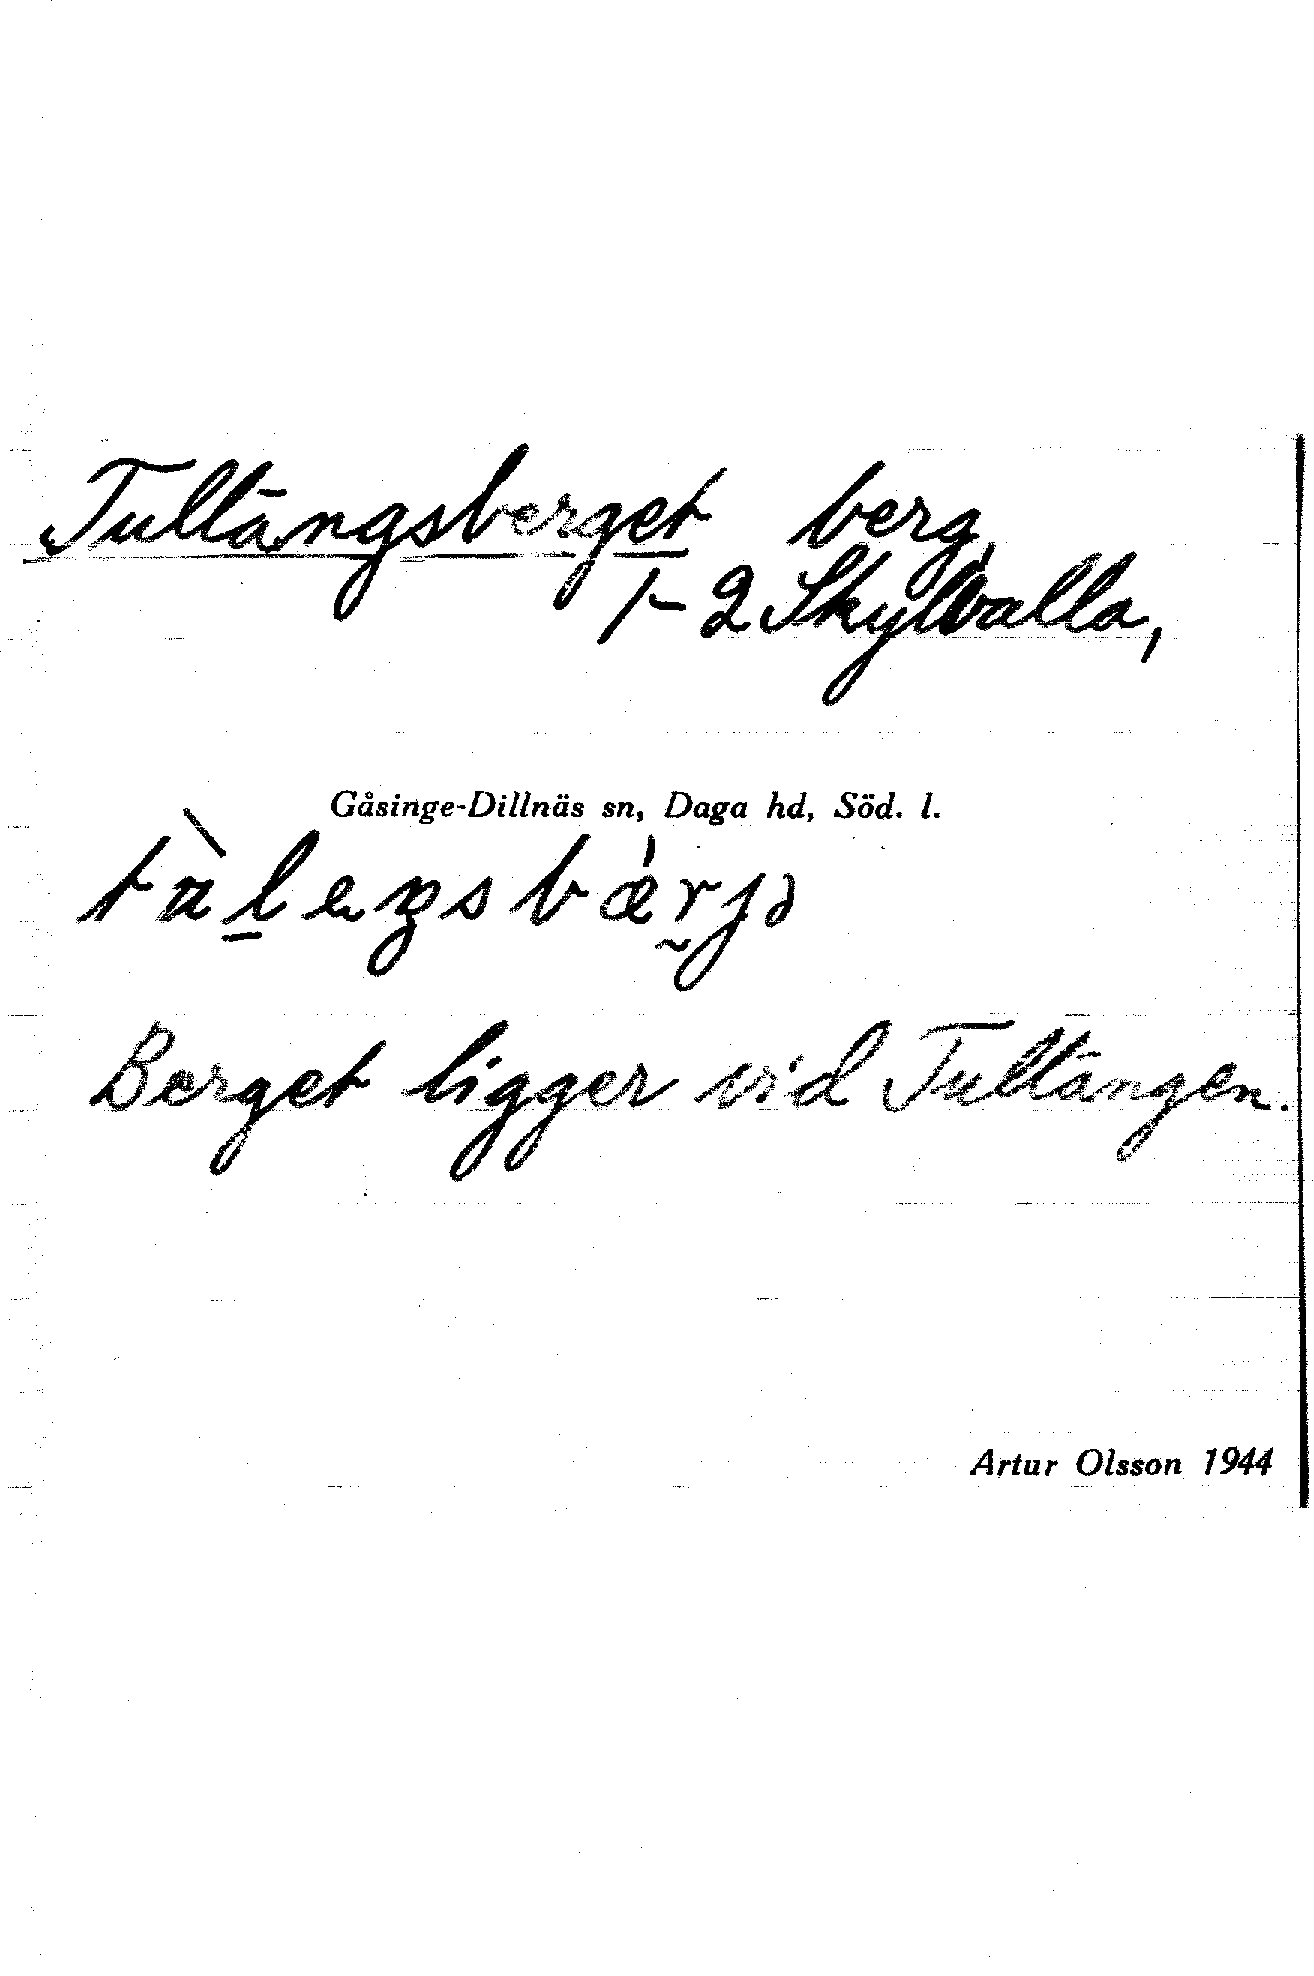 Tullängsberget berg,
1-2 Skylvalla,
Gåsinge-Dillnäs sn, Daga hd, Söd. l.
Berget ligger vid Tullängen.
Artur Olsson 1944